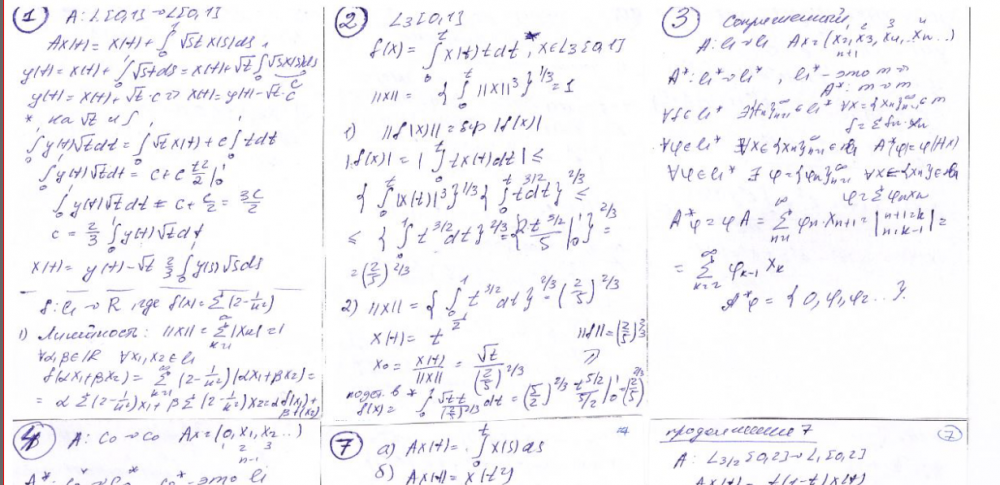 ① A: L[0,1]→L[0,1]
Ax(t) = x(t) + ∫₀¹ √st x(s)ds
y(t) = x(t) + ∫₀¹ √s+ds = x(t) + √t ∫₀¹ √s x(s)ds
c
y(t) = x(t) + √t·c => x(t) = y(t) - √t·c
* на √t и ∫
∫₀¹ y(t)√t dt = ∫₀¹ √t x(t) + c ∫₀¹ t dt
∫₀¹ y(t)√t dt = c + c t²/2 |₀¹
∫₀¹ y(t)√t dt = c + c/2 = 3c/2
c = 2/3 ∫₀¹ y(t)√t dt
x(t) = y(t) - √t 2/3 ∫₀¹ y(s)√s ds
f: l₁→R где f(x) = Σ(2 - 1/k²)
1) Линейность: ||x|| = Σ|xk| = 1
k=1
∀α,β∈R ∀x₁,x₂∈l₁
f(αx₁+βx₂) = Σ (2 - 1/k²)(αx₁+βx₂) =
= α Σ(2 - 1/k²)x₁ + β Σ(2 - 1/k²)x₂ = αf(x₁) + βf(x₂)
② L₃[0,1]
f(x) = ∫₀¹ x(t) t dt *, x∈L₃[0,1]
||x|| = {∫₀¹ ||x||³}^1/3 = 1
1) ||f(x)|| = sup |f(x)|
|f(x)| = |∫₀¹ t x(t)dt| ≤
{∫₀¹ |x(t)|³}^1/3 {∫₀¹ t^3/2 dt}^2/3 ≤
≤ {∫₀¹ t^3/2 dt}^2/3 = {2t^5/2 / 5 |₀¹}^2/3 =
= (2/5)^2/3
2) ||x|| = {∫₀¹ t^3/2 dt}^2/3 = (2/5)^2/3
x(t) = t^1/2 ||f|| = (2/5)^2/3
x₀ = x(t)/||x|| = √t/(2/5)^2/3
подст. в *
f(x) = ∫₀¹ √t·t/(2/5)^2/3 dt = (5/2)^2/3 t^5/2 / 5/2 |₀¹ = (2/5)^2/3
③ Сопряженный
A: l₁→l₁ Ax = (x₂, x₃, x₄...xₙ...)
2 3 4
n+1
A*: l₁*→l₁*, l₁* - это m =>
A*: m→m
∀f∈l₁* ∃{fₙ}ₙ₌₁^∞ ∈l₁* ∀x={xₙ}ₙ₌₁^∞ ∈m
f = Σfₙ·xₙ
∀φ∈l₁* ∀x∈{xₙ}ₙ₌₁^∞ ∈l₁ A*(φ) = φ(Ax)
∀φ∈l₁* ∃φ={φₙ}ₙ₌₁^∞ ∀x∈{xₙ}∈l₁
φ = Σφₙxₙ
A*φ = φA = Σ φₙ·xₙ₊₁ = |n+1=k n=k-1| =
n=1
= Σ φₖ₋₁ xₖ
k=2
A*φ = {0, φ₁, φ₂...}.
④ A: c₀→c₀ Ax = (0, x₁, x₂...)
2 3
n-1
A*: c₀*→c₀* c₀* - это l₁
⑦ а) Ax(t) = ∫₀ᵗ x(s)ds
б) Ax(t) = x(t²)
продолжение 7 ⑦
A: L₃/₂[0,2]→L₁[0,2]
Ax(t) = t(1-t)x(t)